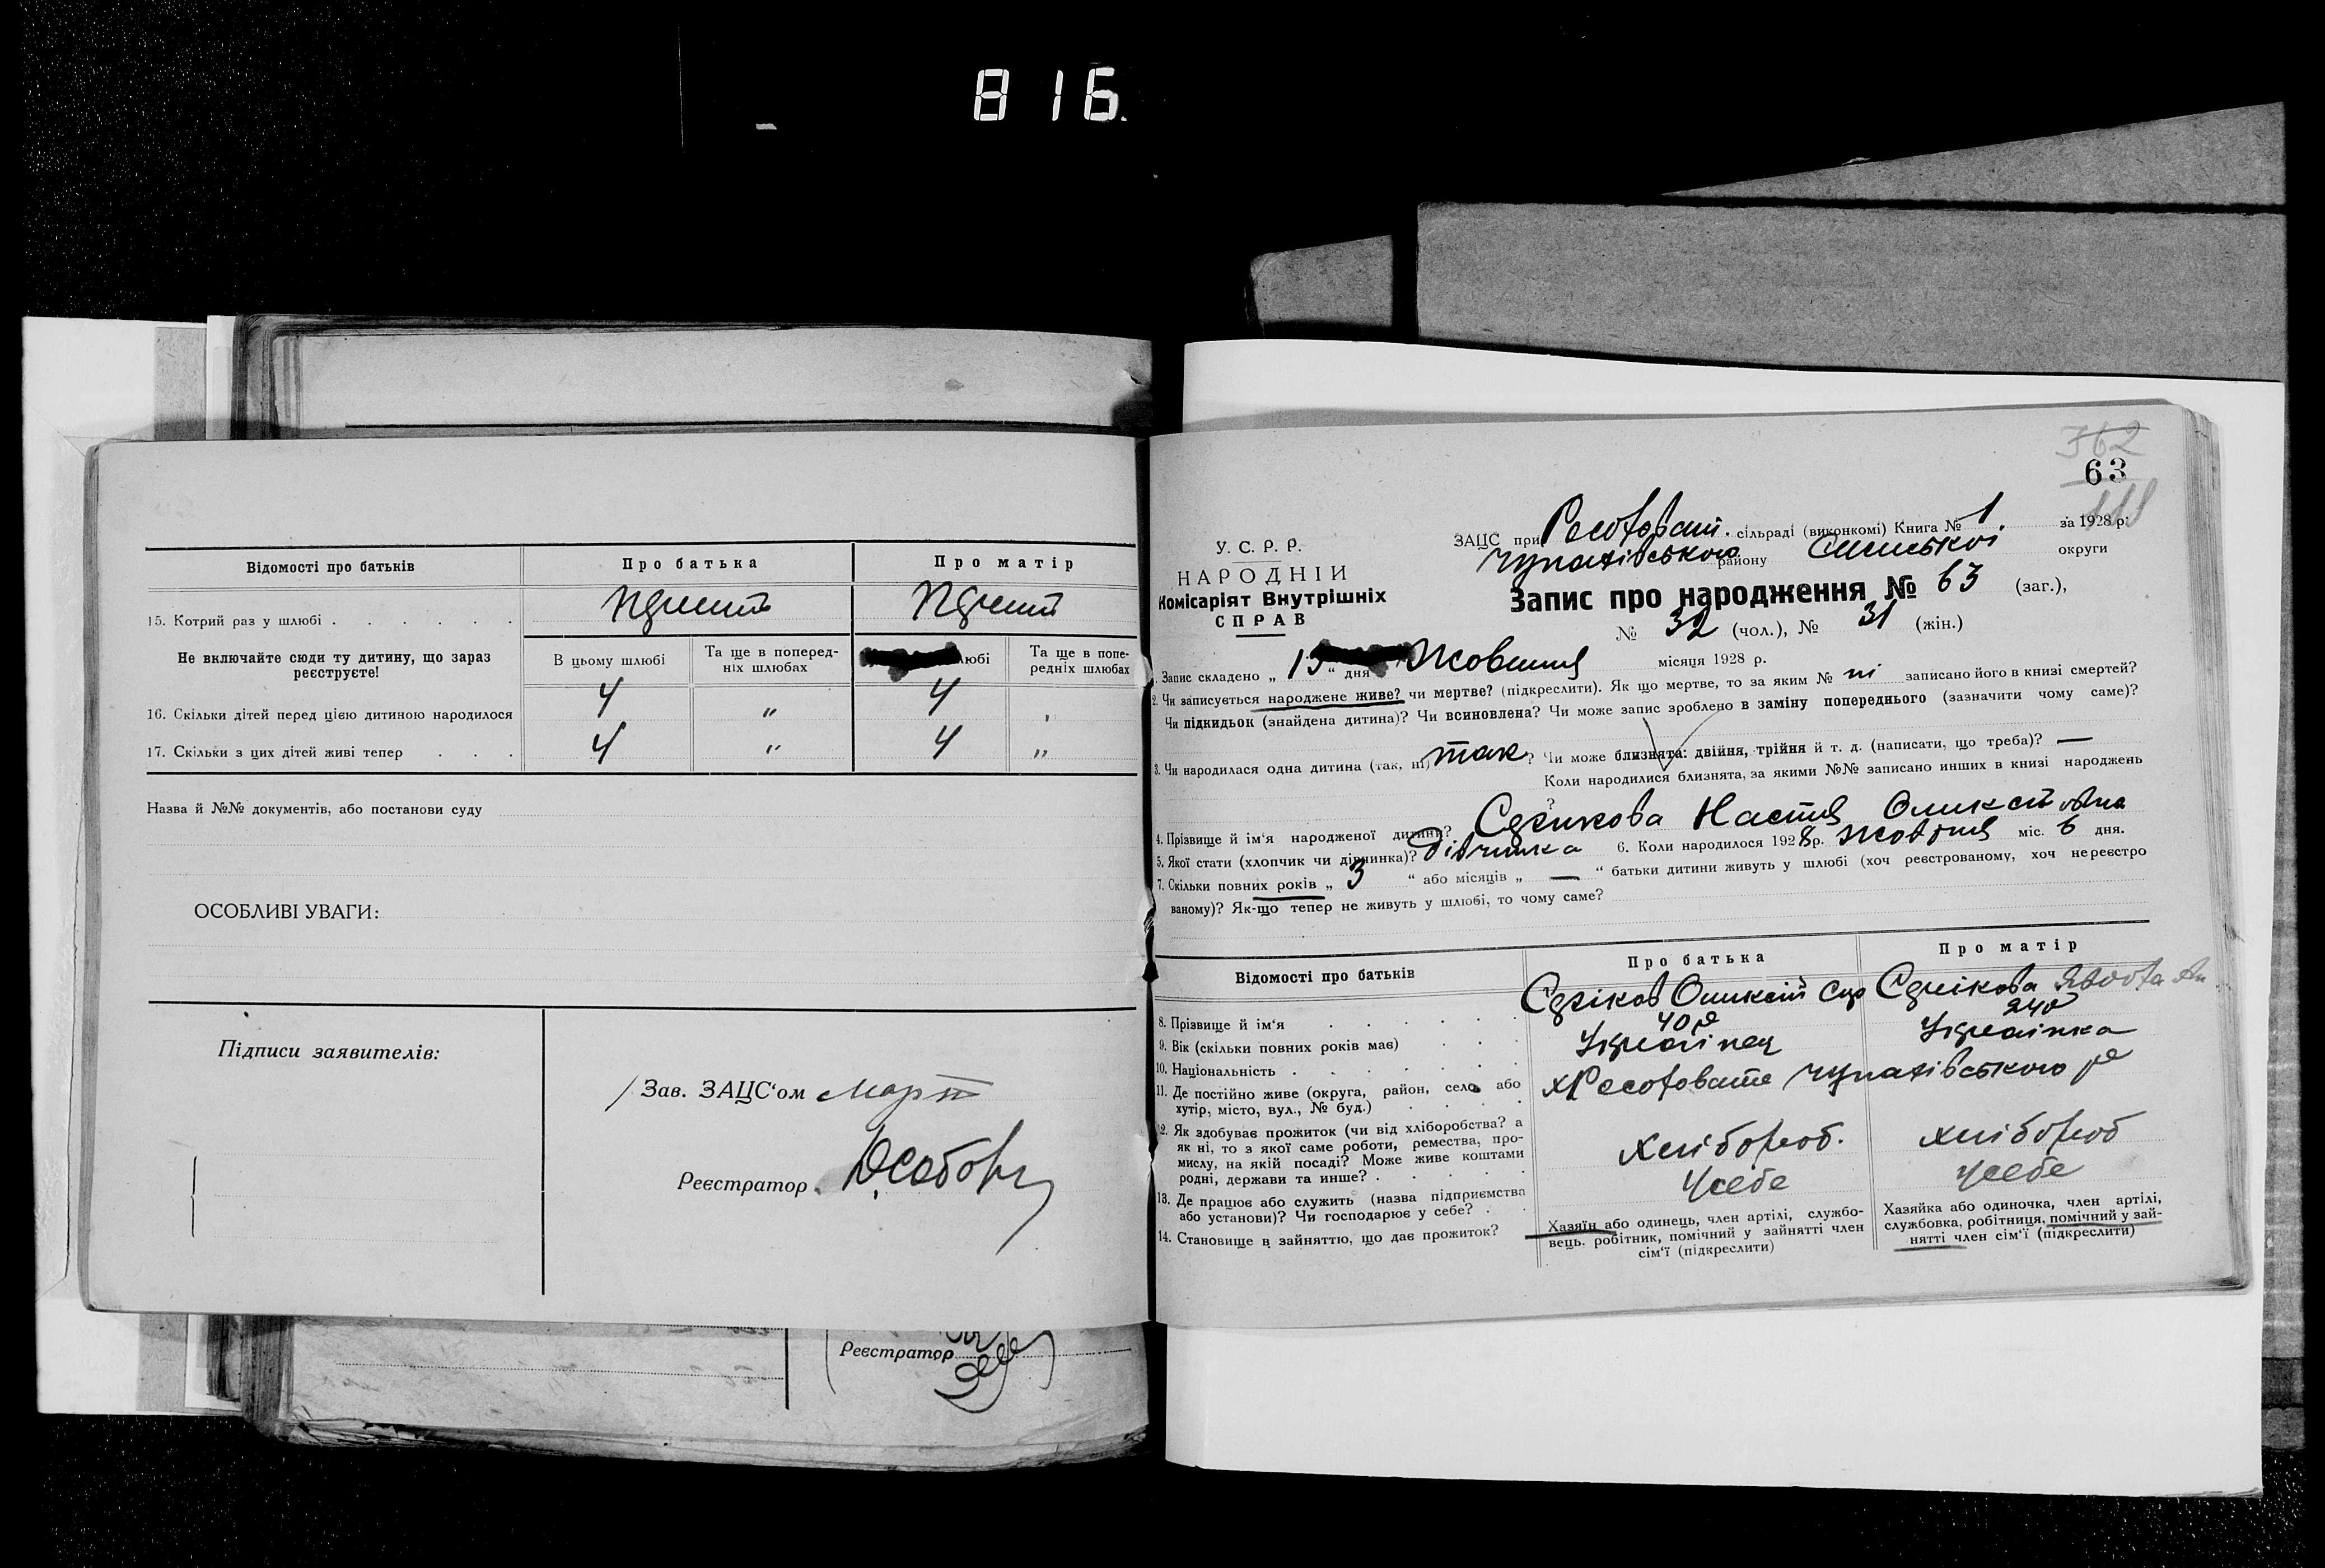 816.
Відомості про батьків
Про батька
Про матір
15. Котрий раз у шлюбі
Не включайте сюди ту дитину, що зараз
реєструєте!
В цьому шлюбі
Та ще в поперед-
ніх шлюбах
любі
Та ще в попе-
редніх шлюбах
16. Скільки дітей перед цією дитиною народилося
4 „ 4
17. Скільки з цих дітей живі тепер
4 „ 4 „
Назва й №№ документів, або постанови суду
ОСОБЛИВІ УВАГИ:
Підписи заявителів:
Зав. ЗАЦС‘ом
Реєстратор
Реєстратор
362
63
У. С. Р. Р.
НАРОДНІЙ
Комісаріят Внутрішніх
СПРАВ
ЗАЦС при сільраді (виконкомі) Книга № 1. за 1928 р.
району округи
Запис про народження № 63 (заг.),
№ 32 (чол.), № 31 (жін.)
1. Запис складено „ “ дня Жовтня місяця 1928 р.
2. Чи записується народжене живе? чи мертве? (підкреслити). Як що мертве, то за яким № ні записано його в книзі смертей?
Чи підкидьок (знайдена дитина)? Чи всиновлена? Чи може запис зроблено в заміну попереднього (зазначити чому саме)?
3. Чи народилася одна дитина (так, ні) так ? Чи може близнята: двійня, трійня й т. д. (написати, що треба)? —
Коли народилися близнята, за якими №№ записано инших в книзі народжень
?
4. Прізвище й ім‘я народженої дитини? Настя
5. Якої стати (хлопчик чи дівчинка)? дівчинка 6. Коли народилося 1928 р. жовтня міс. 6 дня.
7. Скільки повних років „ 3 “ або місяців „ — “ батьки дитини живуть у шлюбі (хоч реєстрованому, хоч нереєстро
ваному)? Як-що тепер не живуть у шлюбі, то чому саме?
Відомості про батьків
Про батька
Про матір
8. Прізвище й ім‘я
9. Вік (скільки повних років має)
40 р
24 р
10. Національність
Українец
Українка
11. Де постійно живе (округа, район, село або
хутір, місто, вул., № буд.)
12. Як здобуває прожиток (чи від хліборобства? а
як ні, то з якої саме роботи, ремества, про-
мислу, на якій посаді? Може живе коштами
родні, держави та инше?
хлібороб.
хлібороб
13. Де працює або служить (назва підприємства
або установи)? Чи господарює у себе?
У себе
У себе
14. Становище в зайняттю, що дає прожиток?
Хазяїн або одинець, член артілі, службо-
вець, робітник, помічний у зайнятті член
сім‘ї (підкреслити)
Хазяйка або одиночка, член артілі,
службовка, робітниця, помічний у зай-
нятті член сім‘ї (підкреслити)